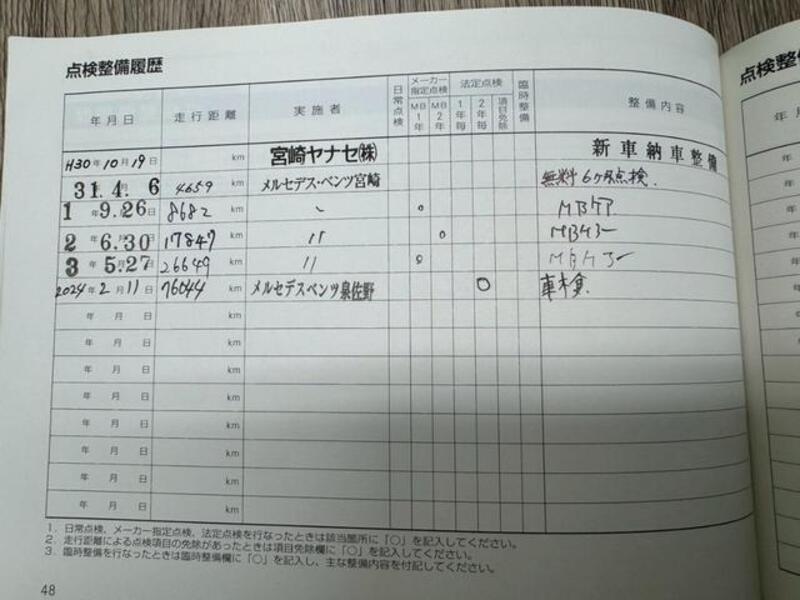 点検整備履歴
年月日 走行距離 実施者 日常点検 メーカー指定点検 MB1年 MB2年 法定点検 1年毎 2年毎 項目免除 臨時整備 整備内容
H30年10月19日 km 宮崎ヤナセ(株) 新車納車整備
31.4.6 4659 km メルセデス・ベンツ宮崎 無料6ヶ月点検.
1年9.26日 8682 km 〃 ○
2年6.30日 17847 km 〃 ○
3年5.27日 26649 km 〃 ○
2024年2月11日 76044 km メルセデスベンツ泉佐野 ○ 車検.
年 月 日 km
年 月 日 km
年 月 日 km
年 月 日 km
年 月 日 km
年 月 日 km
年 月 日 km
年 月 日 km
1. 日常点検、メーカー指定点検、法定点検を行なったときは該当箇所に「○」を記入してください。
2. 走行距離による点検項目の免除があったときは項目免除欄に「○」を記入してください。
3. 臨時整備を行なったときは臨時整備欄に「○」を記入し、主な整備内容を付記してください。
48
点検整
年